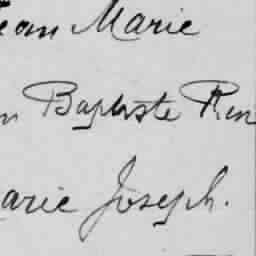 ean Marie
n Baptiste Ren
arie Joseph.